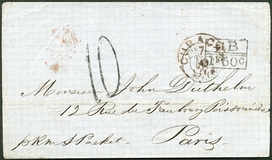 CURACAO
GB
60c
10
Monsieur John Duthelm
12 Rue du Faubourg Poissonnière
Paris
p R M S Packet